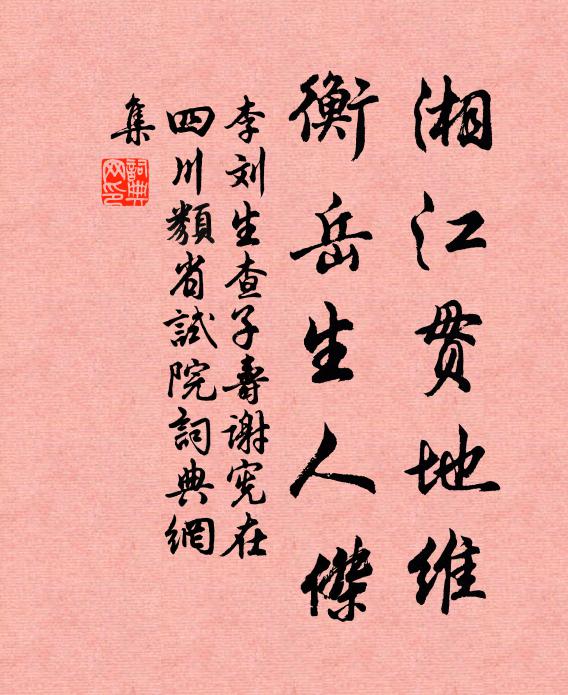 湘江贯地维
衡岳生人傑
李刘生查子寿谢宪在
四川類省試院詞典網
集
詞典网印